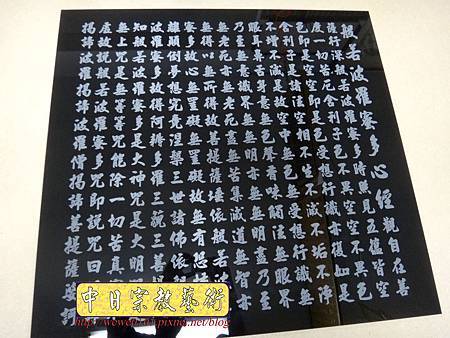 般若波羅蜜多心經
觀自在菩
薩行深般若波羅蜜多時照見五蘊皆空
度一切苦厄舍利子色不異空空不異
色即是空空即是色受想行識亦復如是
舍利子是諸法空相不生不滅不垢不淨
不增不減是故空中無色無受想行識無
眼耳鼻舌身意無色聲香味觸法無眼界
乃至無意識界無無明亦無無明盡乃至
無老死亦無老死盡無苦集滅道無智亦
無得以無所得故菩提薩埵依般若波羅
蜜多故心無罣礙無罣礙故無有恐怖遠
離顛倒夢想究竟涅槃三世諸佛依般若
波羅蜜多故得阿耨多羅三藐三菩提故
知般若波羅蜜多是大神咒是大明咒是
無上咒是無等等咒能除一切苦真實不
虛故說般若波羅蜜多咒即說咒曰
揭諦波羅僧揭諦菩提薩婆訶
中日宗教藝術